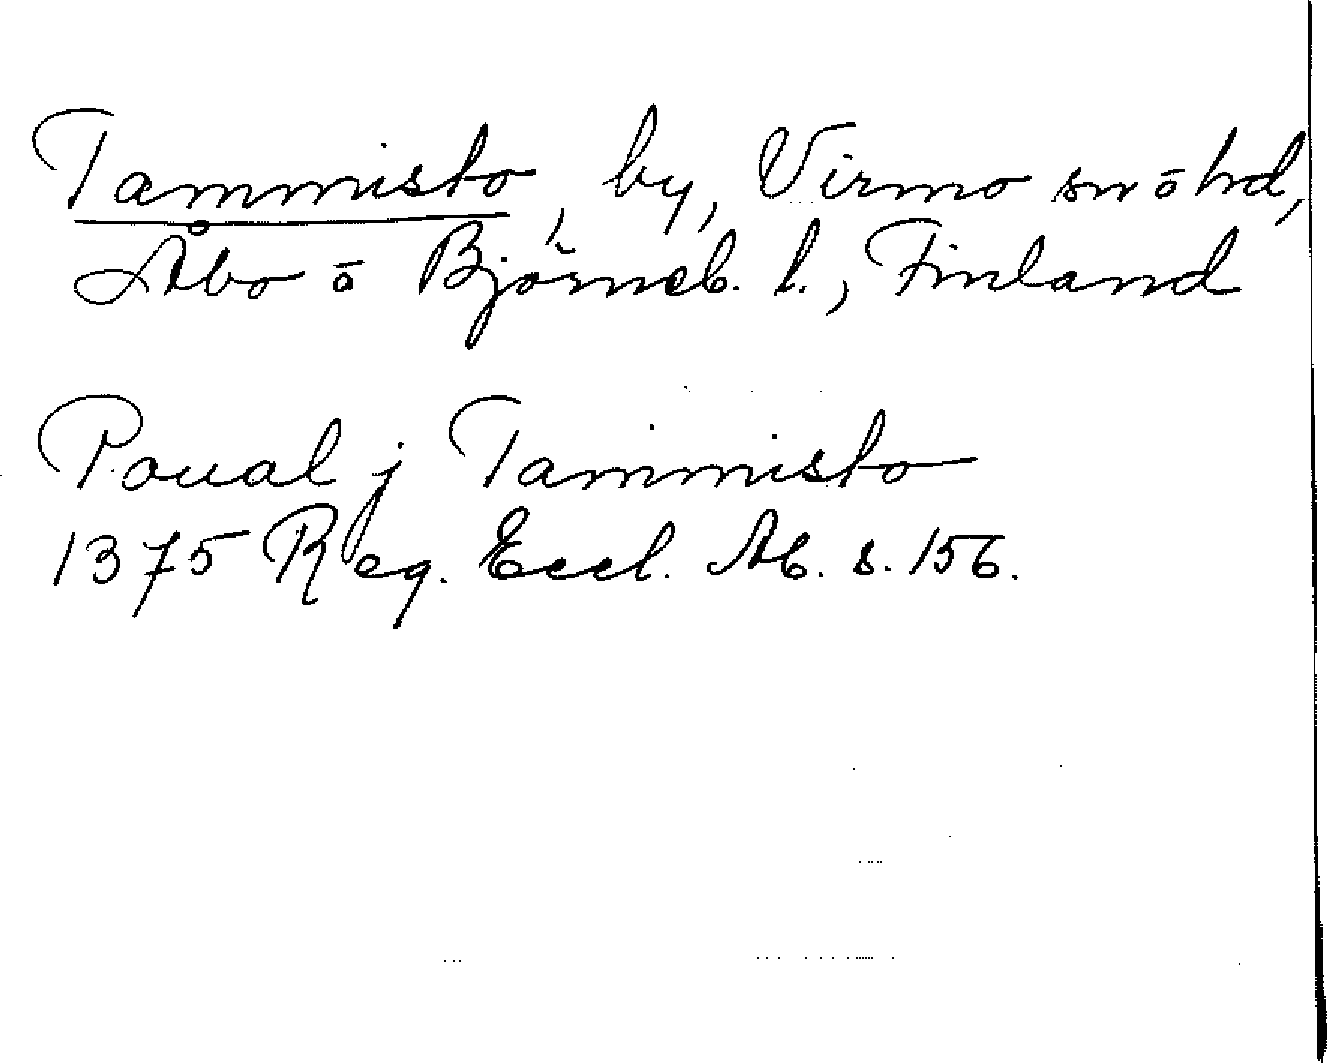 Tammisto, by, Virmo sn ō hd,
Åbo ō Björneb. l., Finland
Poual j Tammisto
1375 Reg. Eccl. Ab. s. 156.